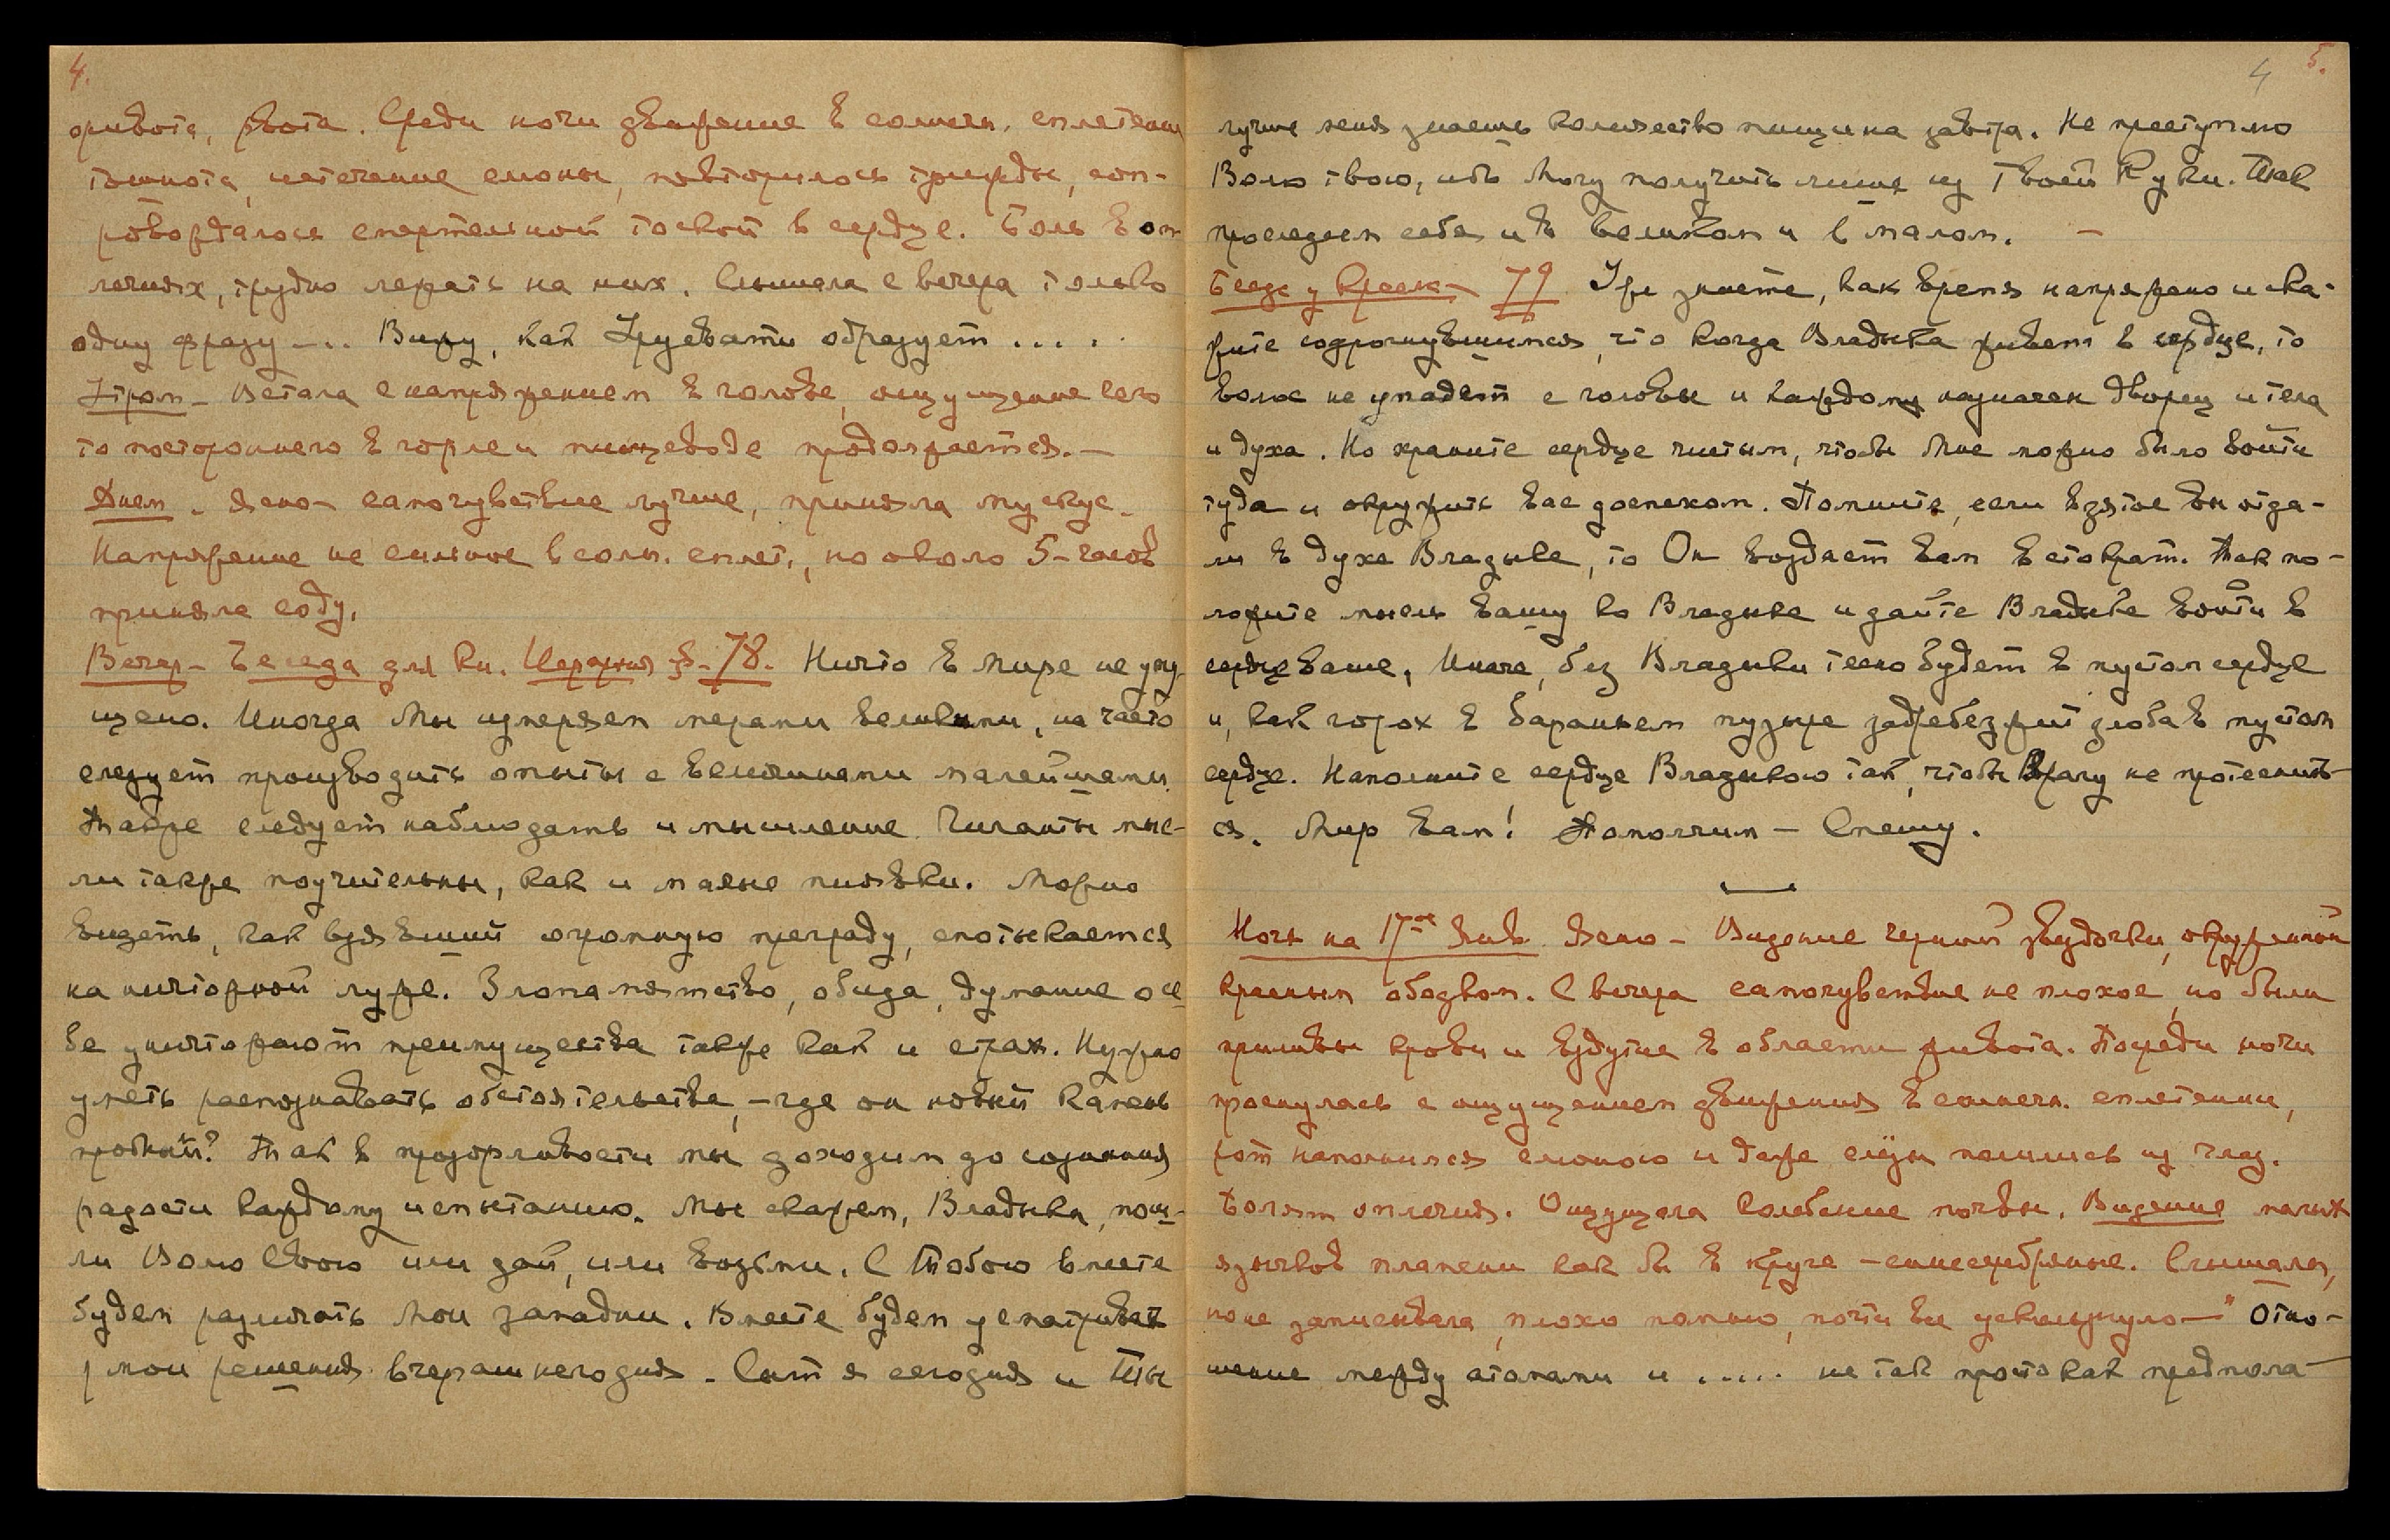 4.
живота, рвота. Среди ночи движение в солнечн. сплетении
тошнота, истечение слюны, повторилось трижды, соп-
ровождалось смертельной тоской в сердце. Боль в оп-
лечиях, трудно лежать на них. Слышала с вечера только
одну фразу — .. Вижу, как Урусвати образует .....
Утром — Встала с напряжением в голове, ощущение чего
то постороннего в горле и пищеводе продолжается. —
Днем. Ясно — самочувствие лучше, приняла мускус.
Напряжение не сильное в солн. сплет., но около 5-часов
приняла соду.
Вечер — Беседа для кн. Иерархия § — 78. Ничто в мире не упу-
щено. Иногда Мы измеряем мерами великими, но часто
следует производить опыты с величинами малейшими.
Также следует наблюдать и мышление. Гиганты мыс-
ли также поучительны, как и малые пиявки. Можно
видеть, как взявший огромную преграду, спотыкается
на ничтожной луже. Злопамятство, обида, думание о се-
бе уничтожают преимущества также как и страх. Нужно
уметь распознавать обстоятельства, — где он новый камень
пробный? Так в прозорливости мы доходим до создания
радости каждому испытанию. Мы скажем, Владыка, пош-
ли Волю Свою или дай, или возьми. С Тобою вместе
будем различать Мои западни. Вместе будем усматривать
мои решения вчерашнего дня. Сыт я сегодня и Ты
4 5.
лучше меня знаешь количество пищи на завтра. Не преступлю
Волю твою, ибо Могу получить лишь из Твоей Руки. Так
проследим себя и в великом и в малом. —
Беседа у Красн. — 79 Уже знаете, как время напряжено и ска-
жите содрогнувшимся, что когда Владыка живет в сердце, то
волос не упадет с головы и каждому назначен дворец и тела
и духа. Но храните сердце чистым, чтобы Мне можно было войти
туда и окружить вас доспехом. Помните, если взятое вы отда-
ли в духе Владыке, то Он воздаст вам в стократ. Так по-
ложите мысль вашу ко Владыке и дайте Владыке войти в
сердце ваше. Иначе, без Владыки тесно будет в пустом сердце
и, как горох в бараньем пузыре задребезжит злоба в пустом
сердце. Наполните сердце Владыкою так, чтобы врагу не протеснить-
ся. Мир вам! Помолчим — Спешу.
Ночь на 17ое Янв. Ясно — Видение черной звездочки, окруженной
красным ободком. С вечера самочувствие не плохое, но были
приливы крови и вздутие в области живота. Посреди ночи
проснулась с ощущением движения в солнечн. сплетении,
рот наполнился слюною и даже слёзы полились из глаз.
Болят оплечия. Ощущала колебание почвы. Видение малых
язычков пламени как бы в круге — синесеребряные. Слышала,
но не записывала, плохо помню, почти все ускользнуло — "Отно-
шение между атомами и ..... не так просто как предпола-